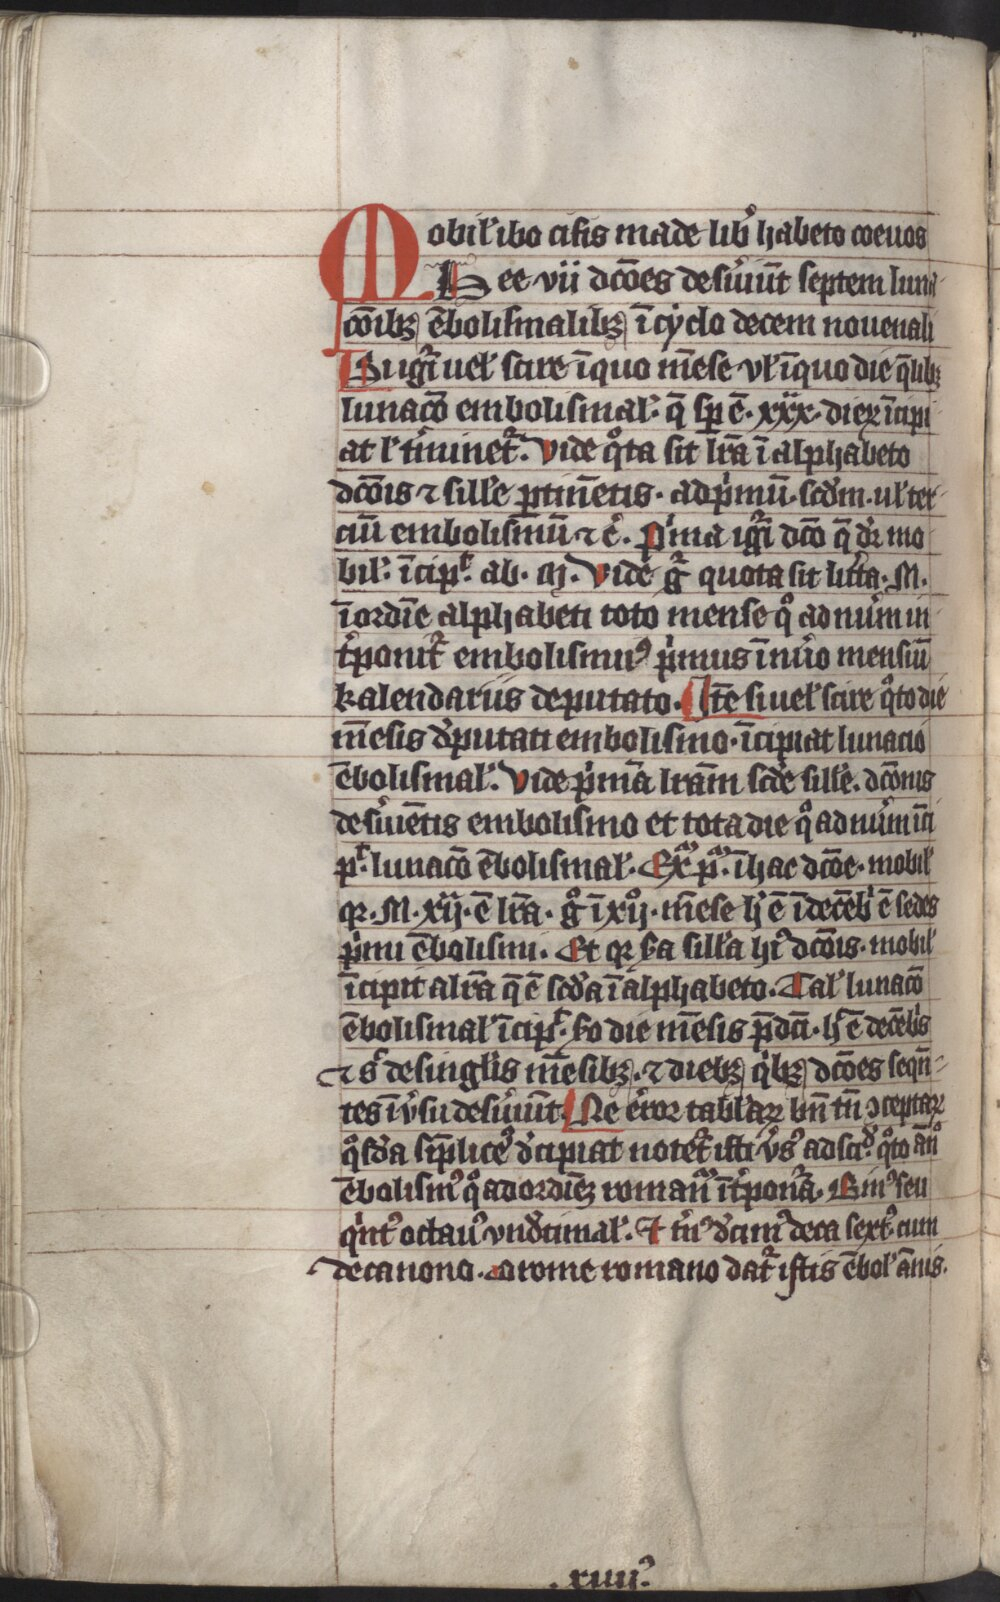 Mobil'ibo cifis made lib' habeto coeuos
Hee vii dcōes deſūiūt septem luna-
cōibꝫ ēbolismalibꝫ ī cyclo decem nouenali
Si ug̓ uel' scire īquo mēse vl' īquo die q̄libꝫ
lunacō embolismal'. q̄ sp̄ ē. xxx. dieꝝ īcipi-
at l' t̓minet̓. Vide q̊ta sit lr̄a ī alphabeto
dcōis ⁊ sill'e ꝑtinētis. ad p̓mū. scd̓m. ul' ter-
ciū embolismū ⁊ c̓. P̓ma ig̓ dcō q̄ dr̄ mo-
bil'. īcip̓t. ab. M. Vide g̓ quota sit litt̓a. M.
ī ordīe alphabeti toto mense q̊ ad nūm in-
t̓ponit̓ embolismꝰ p̓mus ī nūo mensiū
kalendariis deputato. Itē si uel' scire q̊to die
mēsis d̓putati embolismo. īcipiat lunacio
ēbolismal'. Vide p̓mā lrām scd̓e sill'e. dcōnis
deſūiētis embolismo et tota die q̊ ad nūm īci-
p̓t lunacō ēbolismal'. Ex̄ p̄. ī hac dcōe. mobil'
qꝛ. M. xij. ē lr̄a. g̊ ī xij̊. mēse h̓ ē ī decēb̓ ē sedes
p̓mi ēbolismi. Et qꝛ s̄a sill'a hꝰ dcōis. mobil'
īcipit a lr̄a q̄ ē scd̓a ī alphabeto. Tal' lunacō
ēbolismal' īcip̓t. s̄o die mēsis p̄dc̄i. h̓ ē decēb̓is
⁊ s̓ de singl'is mēsibꝫ. ⁊ diebꝫ q̓bꝫ dcōes seqn̄-
tes ī v̓su deſūiūt. Ne error tabl'aꝝ bn̄ tn̄ ↄceptaꝝ
q̊sd̓a sīplicē d̓cipiat notet̓ isti v̓sꝰ ad sciᵈ̓. q̊to an̄o
ēbolismꝰ q̊ ad ordinēꝫ roman̄ īt̓ponat̓. Binꝰ seu
q̓ntꝰ octauꝰ vnd̓cimal'. ⁊ t̓nꝰ d̓cimꝰ deca sextꝰ cum
decanono. a rome romano dat̓ istis ēbol' ānis.
.xiiii.ꝰ